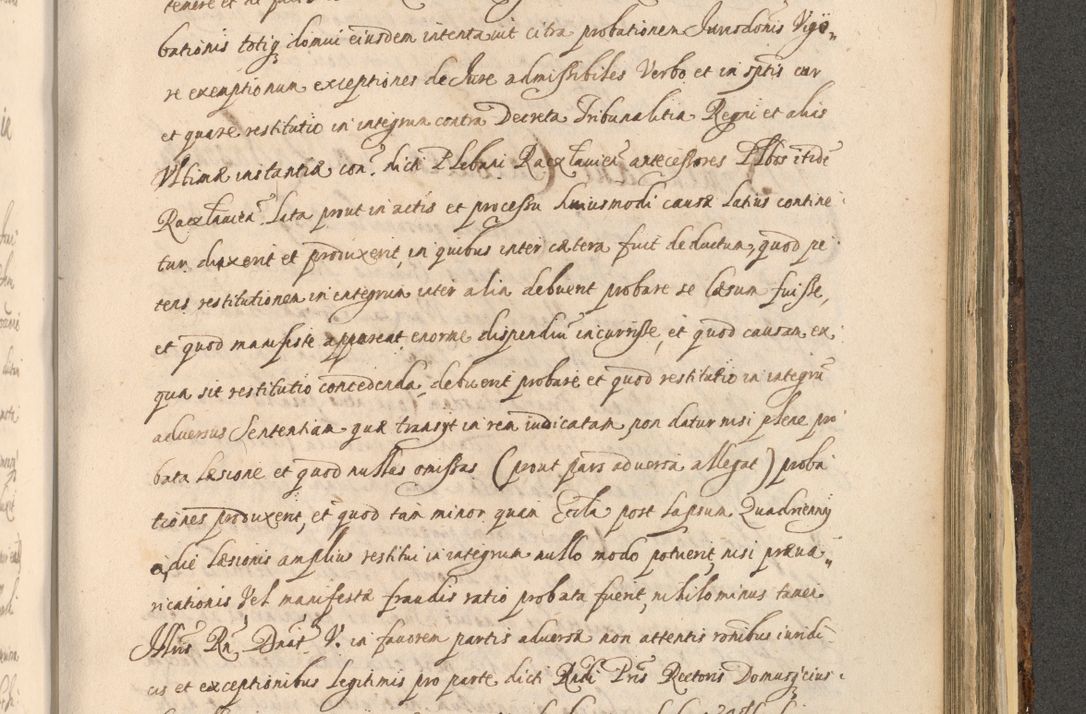 bationis totiq domui eiusdem intentavit citra probationem Jurisdonis Vigo„
re exemptionum exceptiones de Jure admissibiles Verbo et in sptis cur
et quare restitutio in integrum contra Decreta Tribunalitia Regni et alias
Ultimæ instantiæ con. dicti Plebani Racłavicen antecessores Plbos itidē
Racłavicen. lata prout in actis et processu huiusmodi causæ latius contine
tur dixerit et produxerit, in quibus inter cætera fuit deductum, quod pe
tens restitutionem in integrum inter alia debuerit probare se læsum fuisse,
et quod manifeste appareat enorme dispendiū incurrisse, et quod causam ex
qua sit restitutio concedenda, debuerit probare et quod restitutio in integrū
adversus Sententiam quæ transyt in rem iudicatam, non datur nisi plene pro
bata læsione et quod nullas omissas (prout pars adversa allegat) proba
tiones produxerit, et quod tam minor quam Eccla post lapsum Quadrienny
a, die læsionis amplius restitui in integrum nullo modo potuerit, nisi præva„
ricationis Vel manifestæ fraudis ratio probata fuerit, nihilominus tamen
Illris Rn. Dnat. V. in favorem partis adversæ non attentis ronibus iuridi
cis et exceptionibus legitimis pro parte dicti Rndi Pris Rectoris Domusq eius